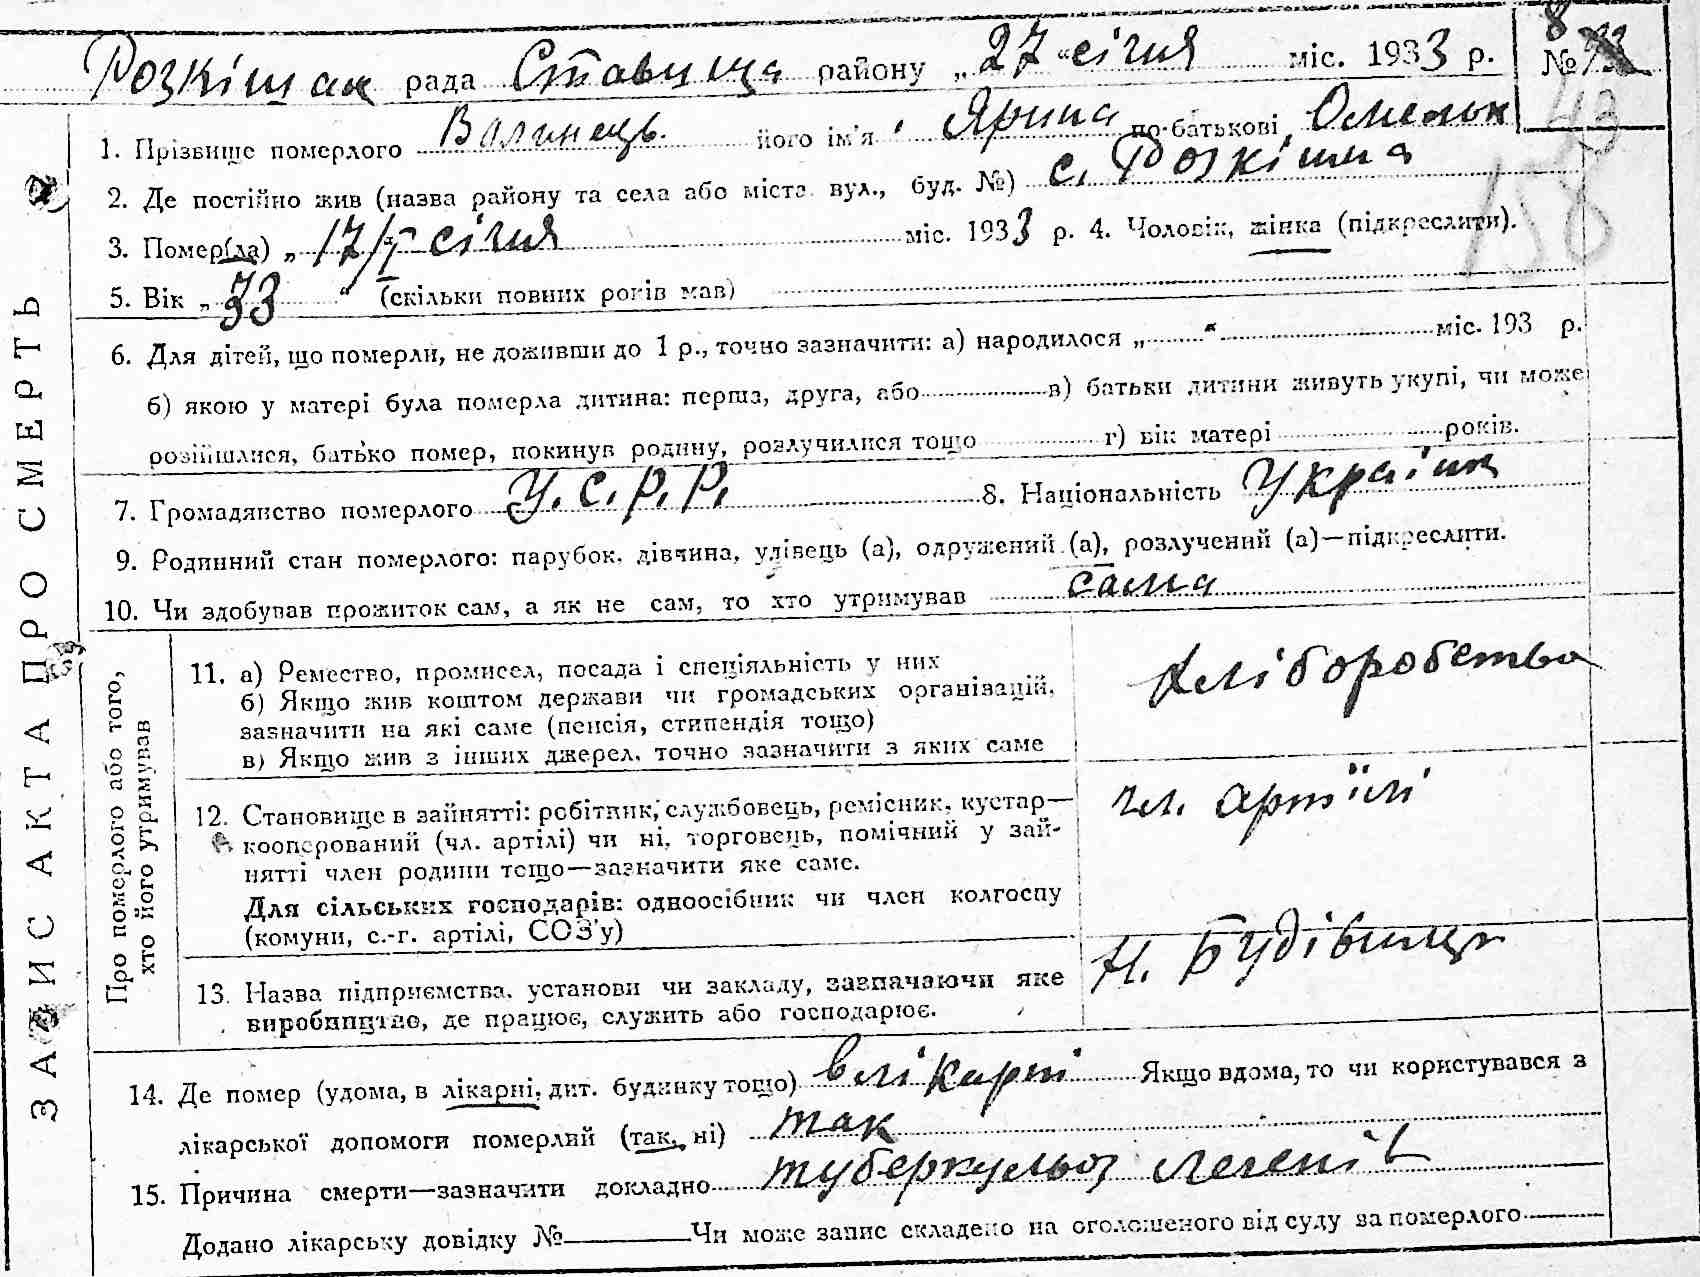 Розкішан рада Ставища району „ 27 “ січня міс. 1933 р. № 8
43
158
ЗАПИС АКТА ПРО СМЕРТЬ
1. Прізвище померлого Волинець його ім’я Ярина по-батькові Омельк
2. Де постійно жив (назва району та села або міста вул., буд. №) с. Розкішна
3. Помер(ла) „ 17/I січня міс. 1933 р. 4. Чоловік, жінка (підкреслити).
5. Вік „ 33 “ (скільки повних років мав)
6. Для дітей, що померли, не доживши до 1 р., точно зазначити: а) народилося „ “ міс. 193 р.
б) якою у матері була померла дитина: перша, друга, або в) батьки дитини живуть укупі, чи може
розійшлися, батько помер, покинув родину, розлучилися тощо г) вік матері років.
7. Громадянство померлого У.С.Р.Р. 8. Національність Україн
9. Родинний стан померлого: парубок, дівчина, удівець (а), одружений (а), розлучений (а)—підкреслити.
10. Чи здобував прожиток сам, а як не сам, то хто утримував сама
Про померлого або того,
хто його утримував
11. а) Ремество, промисел, посада і спеціяльність у них
б) Якщо жив коштом держави чи громадських організацій,
зазначити на які саме (пенсія, стипендія тощо)
в) Якщо жив з інших джерел, точно зазначити з яких саме
хліборобство
12. Становище в зайнятті: робітник, службовець, ремісник, кустар—
кооперований (чл. артілі) чи ні, торговець, помічний у зай-
нятті член родини тощо—зазначити яке саме.
Для сільських господарів: одноосібник чи член колгоспу
(комуни, с.-г. артілі, СОЗ’у)
чл. артілі
13. Назва підприємства, установи чи закладу, зазначаючи яке
виробництво, де працює, служить або господарює.
Н.
14. Де помер (удома, в лікарні, дит. будинку тощо) в лікарні Якщо вдома, то чи користувався з
лікарської допомоги померлий (так, ні) так
15. Причина смерти—зазначити докладно туберкульоз легенів
Додано лікарську довідку № Чи може запис складено на оголошеного від суду за померлого